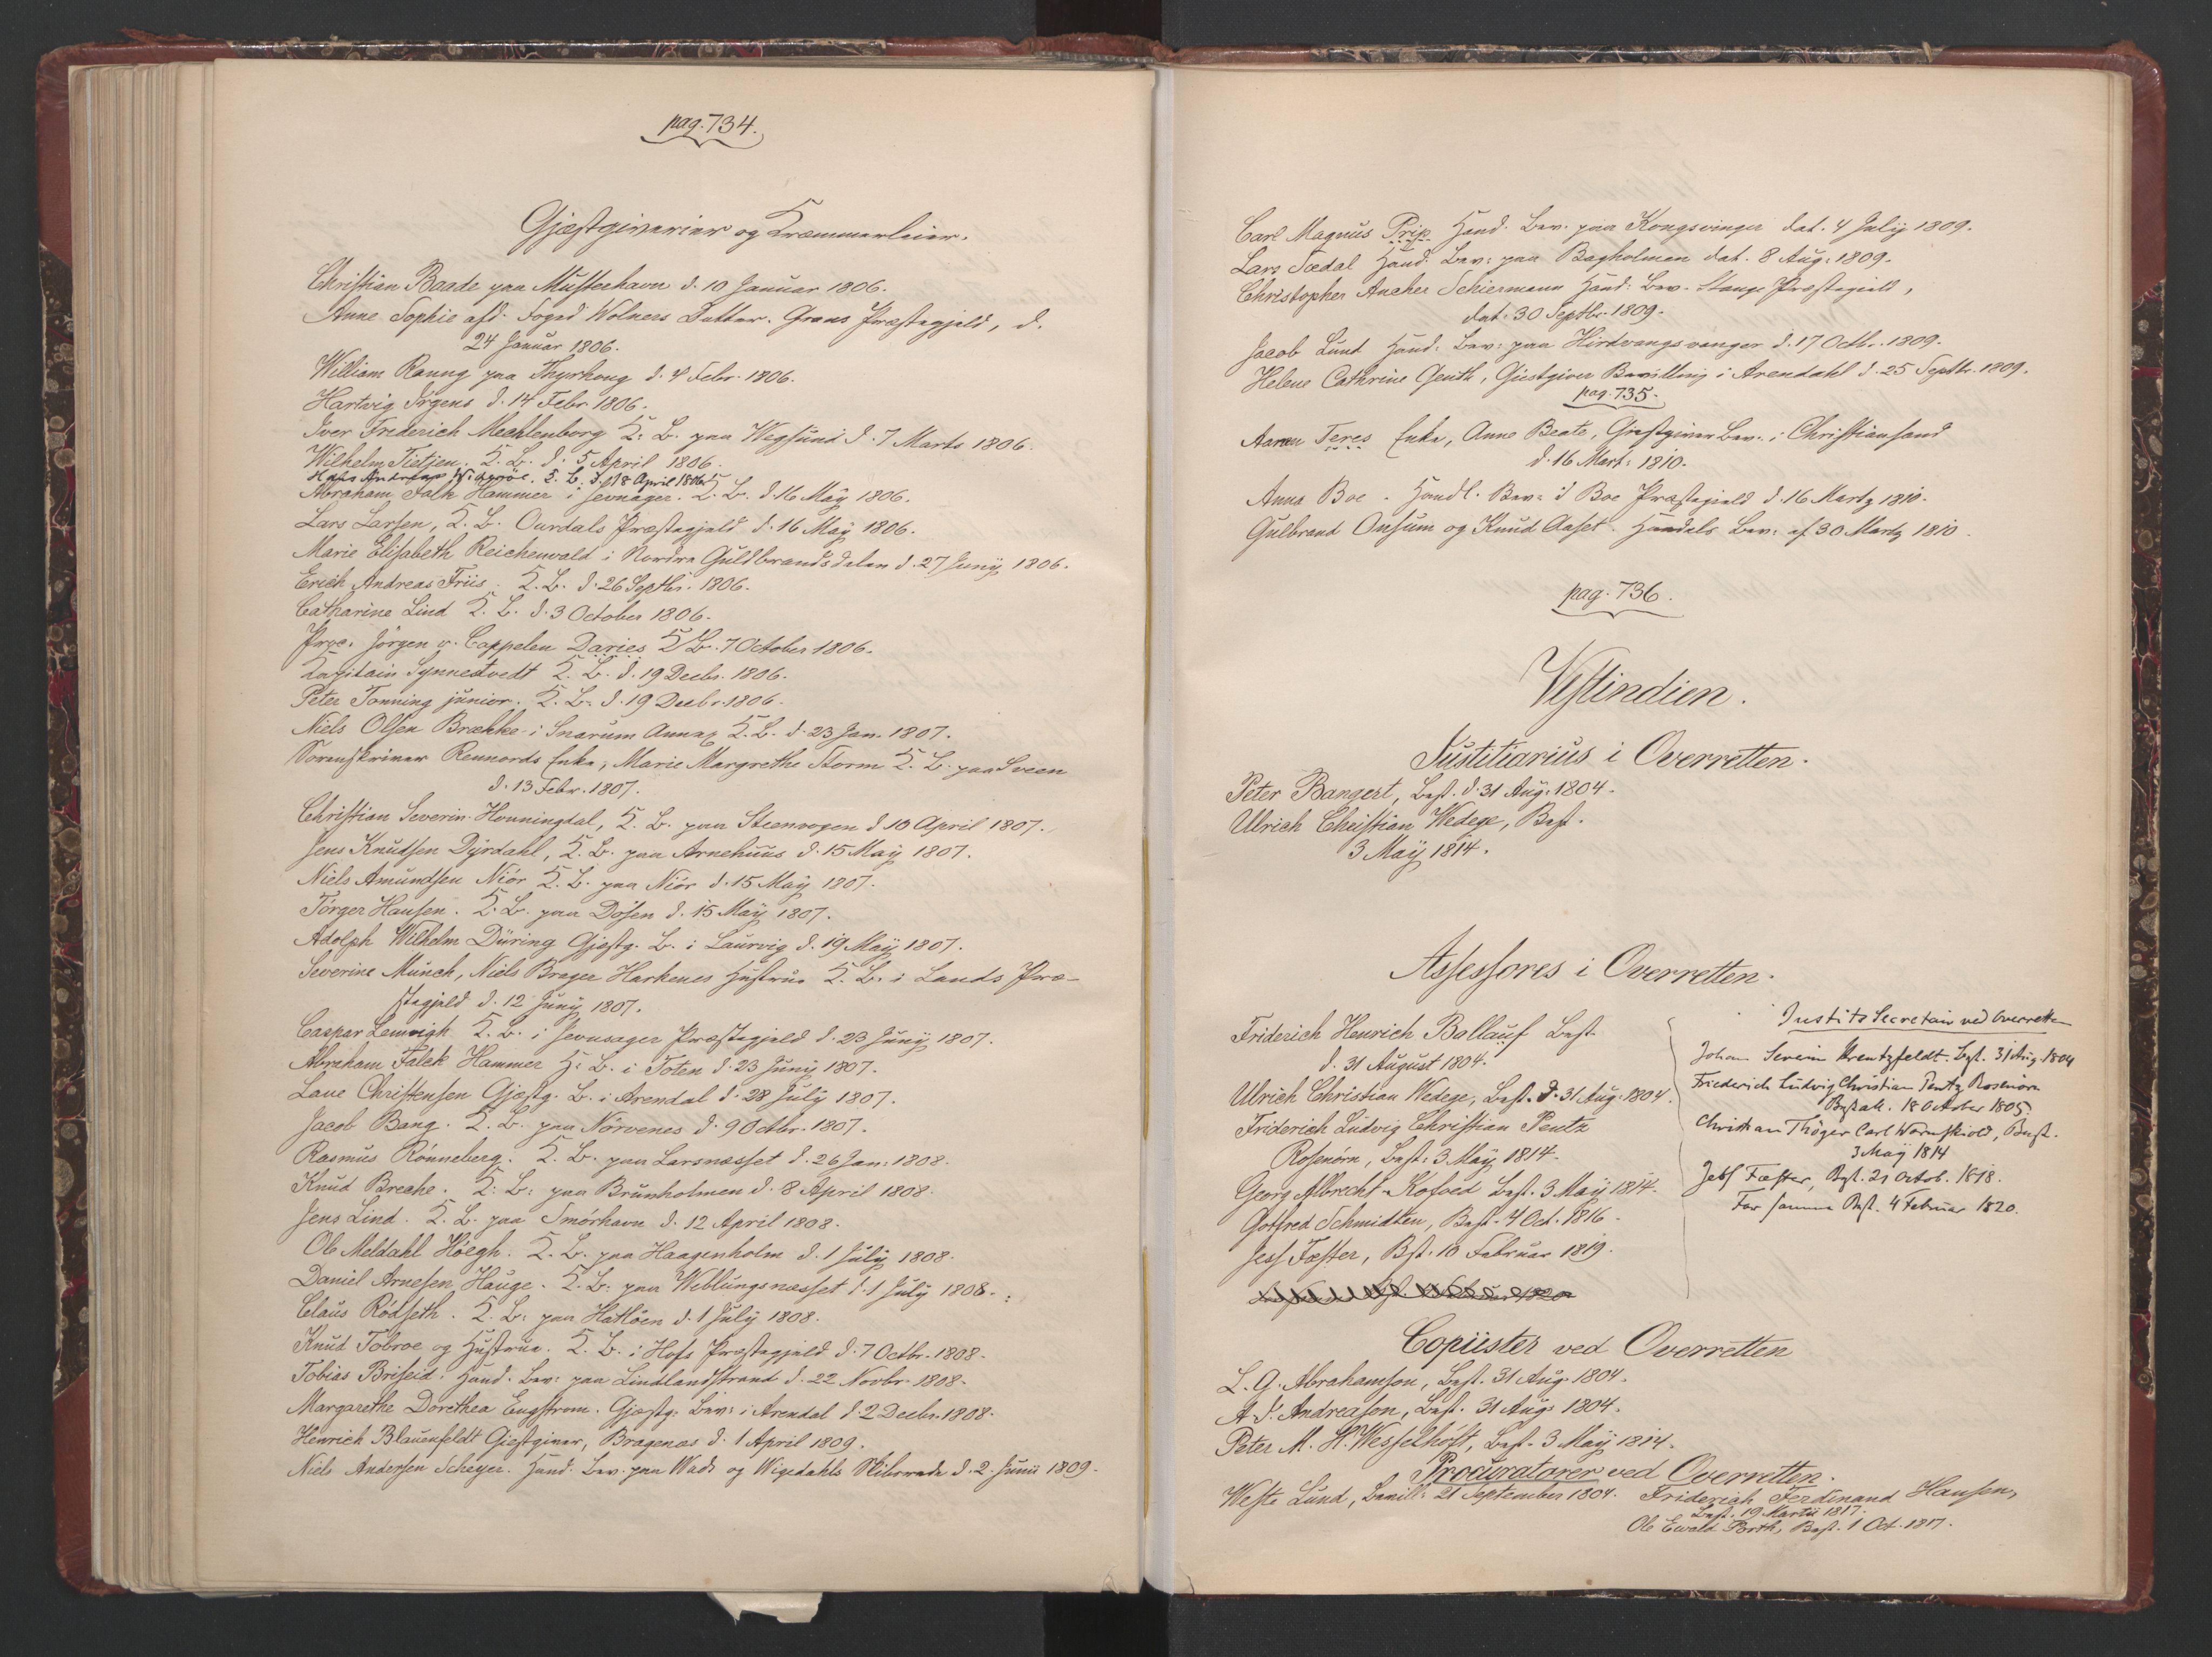 pag. 734.
Gjæstgiverier og Kræmmerleier.
Christian Baade paa Musteehavn d. 10 Januar 1806.
Anne Sophie afd. Foged Wolners Datter. Grans Præstegjeld, d.
24 Januar 1806.
William Raung paa Thyrhoug d. 4 Febr. 1806.
Hartvig Irgens d. 14 Febr 1806.
Iver Frederich Mechlenborg K. B. paa Wegsund d. 7 Marts 1806.
Wilhelm Tietjen. K. B. d. 5 April 1806.
Hans Andreas K. B. d. 18 April 1806
Abraham Falk Hammer i Jevnager. K. B. d. 16 Maÿ 1806.
Lars Larsen, K. B. Ourdals Præstegjeld d. 16 Maÿ 1806.
Marie Elisabeth Reichenwald i Nordre Guldbrandsdalen d. 27 Junÿ 1806.
Erich Andreas Friis. K. B. d. 26 Septbr. 1806.
Catharine Lind K. B. d. 3 October 1806.
Proc. Jörgen v. Cappelen Daries K B. 7 October 1806.
Kapitain Synnestvedt K. B. d. 19 Decbr. 1806.
Peter Tonning junior. K. B. d. 19 Decbr. 1806.
Niels Olsen Brække i Snarum Annex K. B. d. 23 Jan. 1807.
Sorenskriver Rennords Enke, Marie Margrethe Storm K. B. paa Sveen
d. 13 Febr. 1807.
Christian Severin Honningdal, K. B. paa Steenvogen d 10 April 1807.
Jens Knudsen Dÿrdahl, K. B. paa Arnehuus d. 15 Maÿ 1807.
Niels Amundsen Niór K. B. paa Niór d. 15 Maÿ 1807.
Törger Hansen. K. B. paa Dósen d. 15 Maÿ 1807.
Adolph Wilhelm Düring Gjæstg. B. i Laurvig d. 19 Maÿ 1807.
Severine Munch, Niels Brager Harkenes Hustrue K. B. i Lands Præ-
stegjeld d. 12 Junÿ 1807.
Caspar Lemvigh K. B. i Jevnager Præstegjeld d. 23 Junÿ 1807.
Abraham Falck Hammer H. B. i Toten d. 23 Junÿ 1807.
Laue Christensen Gjæstg. B. i Arendal d. 28 Julÿ 1807.
Jacob Bang. K. B. paa Nörvenes d. 9 Octbr. 1807.
Rasmus Rönneberg. K. B. paa Larsnæsset d. 26 Jan: 1808.
Knud Breche. K: B: paa Brunholmen d. 8 April 1808.
Jens Lind. K. B. paa Smórhavn d. 12 April 1808.
Ole Meldahl Höegh. K. B. paa Haagenholm d. 1 Julÿ 1808.
Daniel Arnesen Hauge. K. B: paa Weblungsnæsset d. 1 Julÿ 1808.
Claus Ródseth. K. B: paa Hatlöen d. 1 Julÿ 1808.
Knud Tobroe og Hustrue. K. B. i Hofs Præstegjeld d. 7 Octbr. 1808.
Tobias Briseid. Hand. Bev: paa Lindlandstrand d. 22 Novbr. 1808.
Margarethe Dorethea Engstrom. Gjæstg: Bev: i Arendal d. 2 Decbr. 1808.
Henrich Blauenfeldt Giestgiver, Bragenæs d. 1 April 1809.
Niels Andersen Scheyer. Hand. Bev. paa Wads og Wigedahls Skibrede d. 2. Junii 1809.
Carl Magnus Prip Hand. Bev. paa Kongsvinger dat. 4 Julÿ 1809.
Lars Tædal Hand: Bev: paa Bagholmen dat. 8 Aug: 1809.
Christopher Ancher Schiermann Hand: Bev. Stange Præstegield,
dat. 30 Septbr. 1809.
Jacob Lund Hand: Bev: paa Hirdvangsvanger d. 17 Octbr. 1809.
Helene Cathrine Geuth, Giestgiver Bevilling i Arendahl d. 25 Septbr. 1809.
pag. 735.
Aaron Teres Enke, Anne Beate, Giestgiver Bev. i Christiansand
d. 16 Mart: 1810.
Anna Boe. Handl. Bev: i Boe Præstegield d. 16 Martz 1810.
Gulbrand Onsum og Knud Aaset. Handels Bev: af 30 Martz 1810.
pag. 736.
Vestindien.
Justitiarius i Overretten.
Peter Bangert, Best. d. 31 Aug. 1804.
Ulrich Christian Wedege, Best.
3 Maÿ 1814.
Assessores i Overretten.
Friderich Henrich Ballauf Best.
d. 31 August 1804.
Ulrich Christian Wedege, Best. d. 31 Aug. 1804.
Friderich Ludvig Christian Pentz
Rosenörn, Best: 3 Maÿ 1814.
Georg Albrecht Kofoed Best. 3 Maÿ 1814.
Gotfred Schmidten, Best. 4 Oct. 1816.
Jess Fæster, Bst. 10 Februar 1819.
Justits Secretair ved Overretten
Johan Severin Kreutzfeldt. Best. 31 Aug. 1804
Friederich Ludvig Christian Pentz Rosenörn
Bestalt. 18 October 1805.
Christian Thöger Carl Wormskiold, Best.
3 Maÿ 1814
Jess Fæster, Bst. 21 Octob. 1818.
For samme Best. 4 Februar 1820.
Copiister ved Overretten
L. G. Abrahamson, Best. 31 Aug. 1804.
A. S. Andreason, Best. 31 Aug. 1804.
Peter M. H. Wesselhöft, Best. 3 Maÿ 1814.
Procuratorer ved Overretten.
Weste Lund, Bevill: 21 September 1804. Friderich Ferdinand Hansen,
Best. 19 Martii 1817.
Ole Ewald Porth, Best. 1 Oct. 1817.